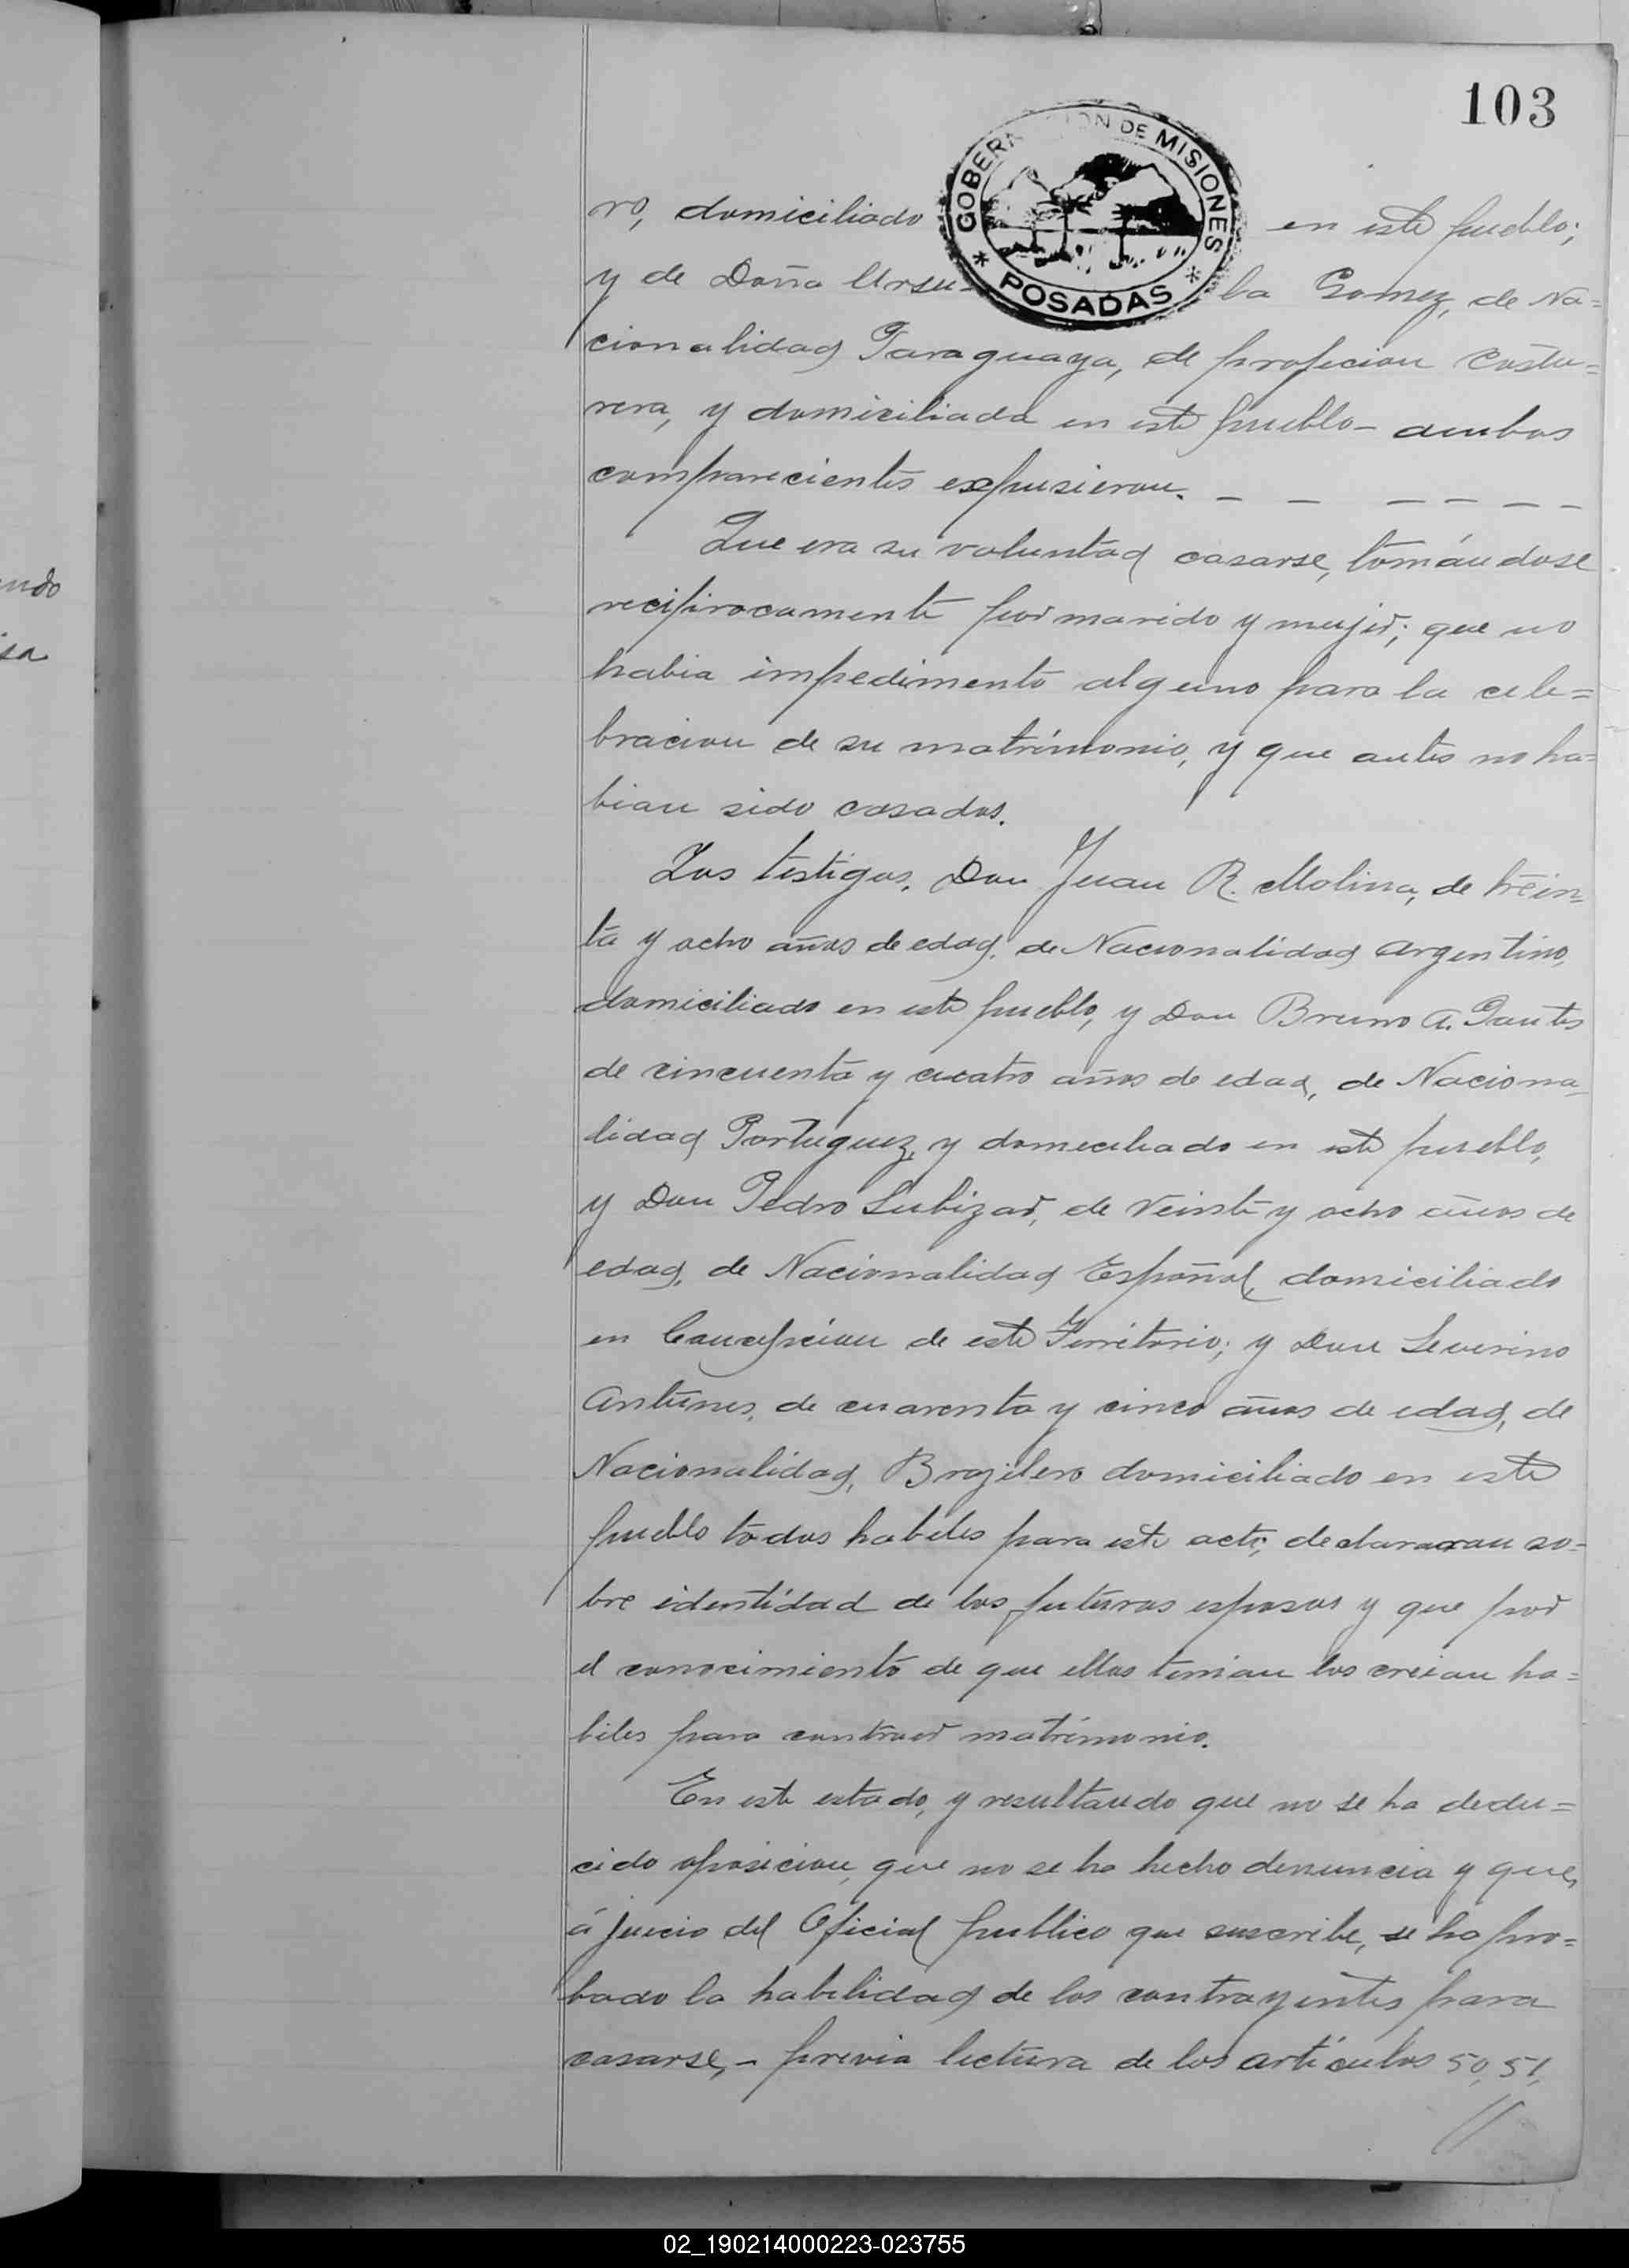 103
GOBERNACION DE MISIONES
* POSADAS *
ro, domiciliado en este pueblo;
y de Doña Ursu- la Gomez, de Na=
cionalidad Paraguaya, de profecion Costu=
rera, y domiciliada en este pueblo - ambos
comparecientes expusieron. - - - - - -
Que era su voluntad casarse, tomándose
recipirocamente por marido y mujer; que no
habia impedimento alguno para la cele=
bracion de su matrimonio, y que antes no ha=
bian sido casados.
Los testigos, Don Juan R. Molina, de trein=
ta y ocho años de edad, de Nacionalidad argentino,
domiciliado en este pueblo, y Don Bruno A.
de cincuenta y cuatro años de edad, de Naciona=
lidad Portuguez, y domiciliado en este pueblo,
y Don Pedro Lubizar, de veinte y ocho años de
edad, de Nacionalidad Español, domiciliado
en Concepcion de este Territorio; y Don Severino
Antunes, de cuarenta y cinco años de edad, de
Nacionalidad, Brazilero domiciliado en este
pueblo todos habiles para este acto, declararan so-
bre identidad de los futuros esposos y que por
el conocimiento de que ellos tenian los creian ha=
biles para contraer matrimonio.
En este estado, y resultando que no se ha dedu=
cido oposicion, que no se ha hecho denuncia y que,
á juicio del Oficial publico que suscribe, se ha pro=
bado la habilidad de los contrayentes para
casarse, - previa lectura de los artículos 50, 51,
//
ndo
sa
02_190214000223-023755